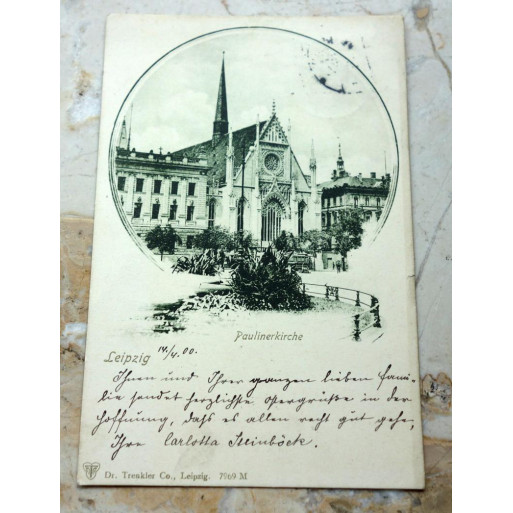 Paulinerkirche
Leipzig 14/4.00.
Ihnen und Ihrer ganzen lieben Fami-
lie sendet herzlichste Ostergrüße in der
Hoffnung, daß es allen recht gut gehe,
Ihre Carlotta Steinböck.
Dr. Trenkler Co., Leipzig. 7969 M